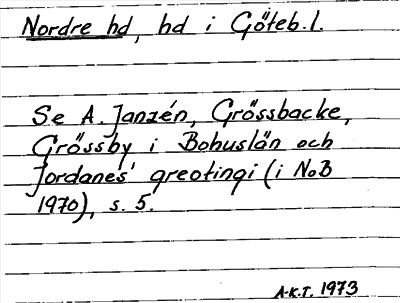 Nordre hd, hd i Göteb.l.
Se A. Janzén, Grössbacke,
Grössby i Bohuslän och
Jordanes' greotingi (i NoB
1970), s. 5.
A-K.T. 1973